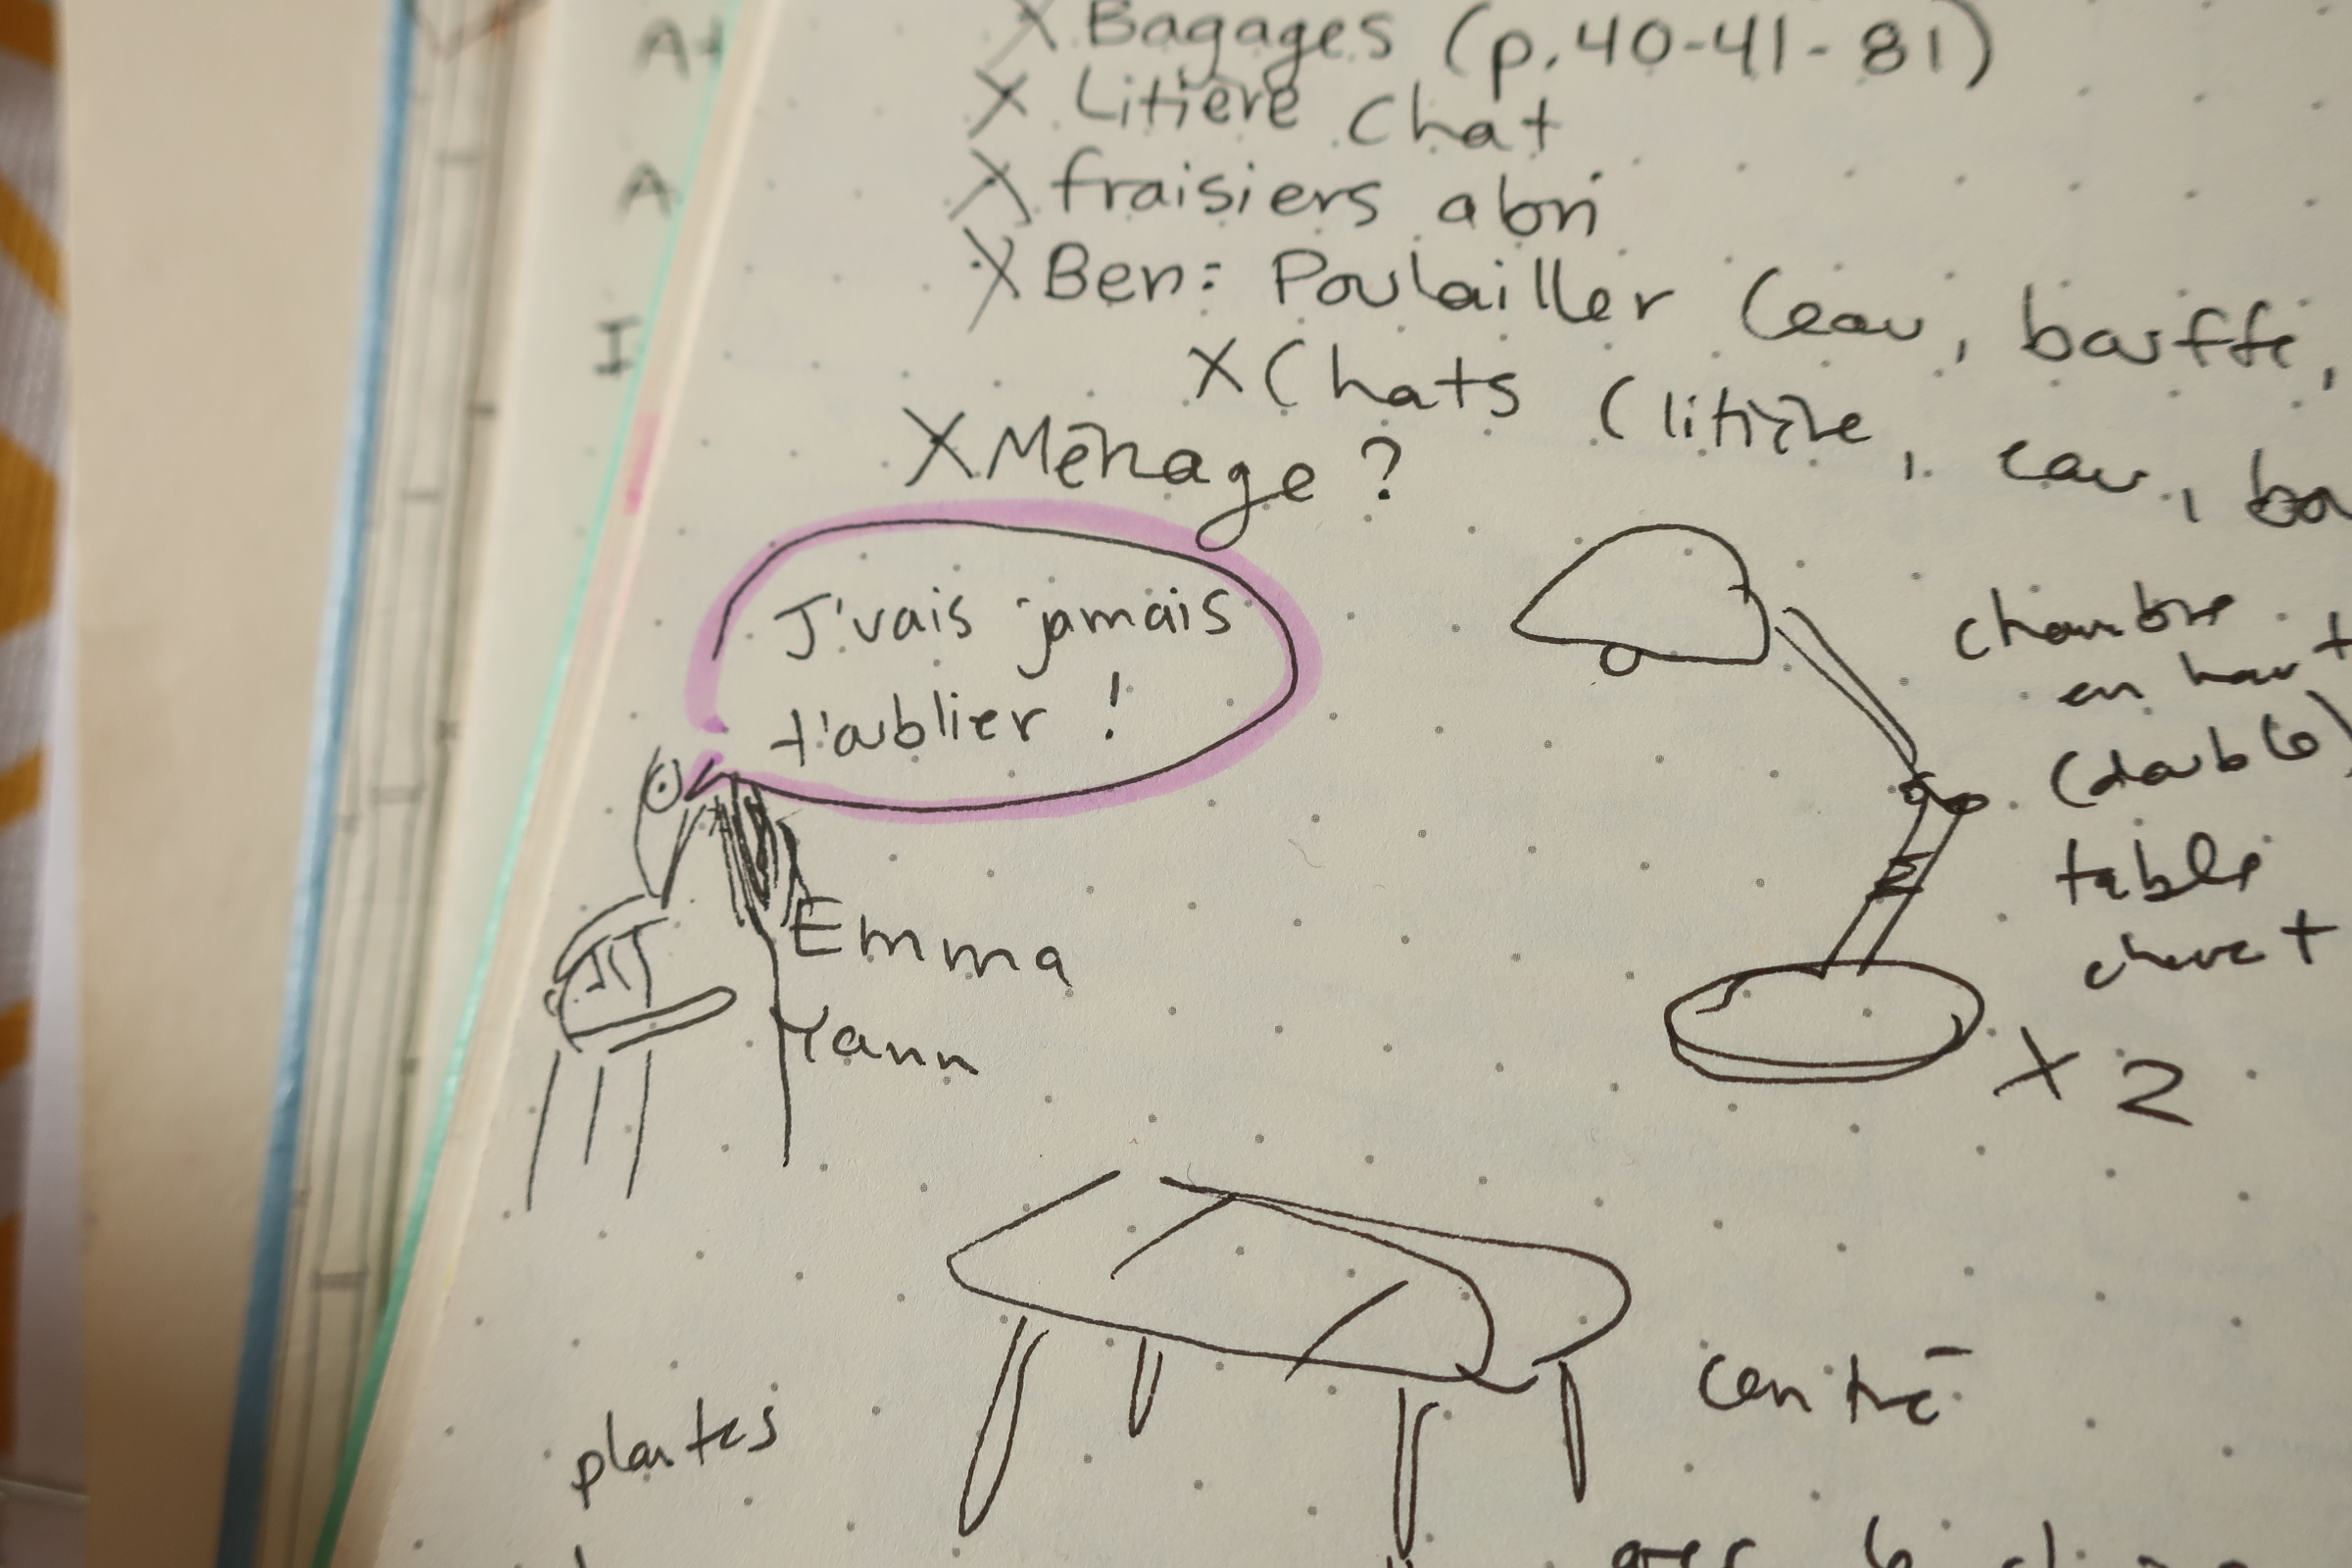 A+
A
I
X Bagages (p.40-41-81)
X Litière chat
X fraisiers abri
X Ben: Poulailler (eau, bouffe,
X Chats (litière, eau, bo
X Ménage ?
J'vais jamais
t'oublier !
Emma
Yann
chambre
en haut
(double)
table
chevet
X 2
centre
plantes